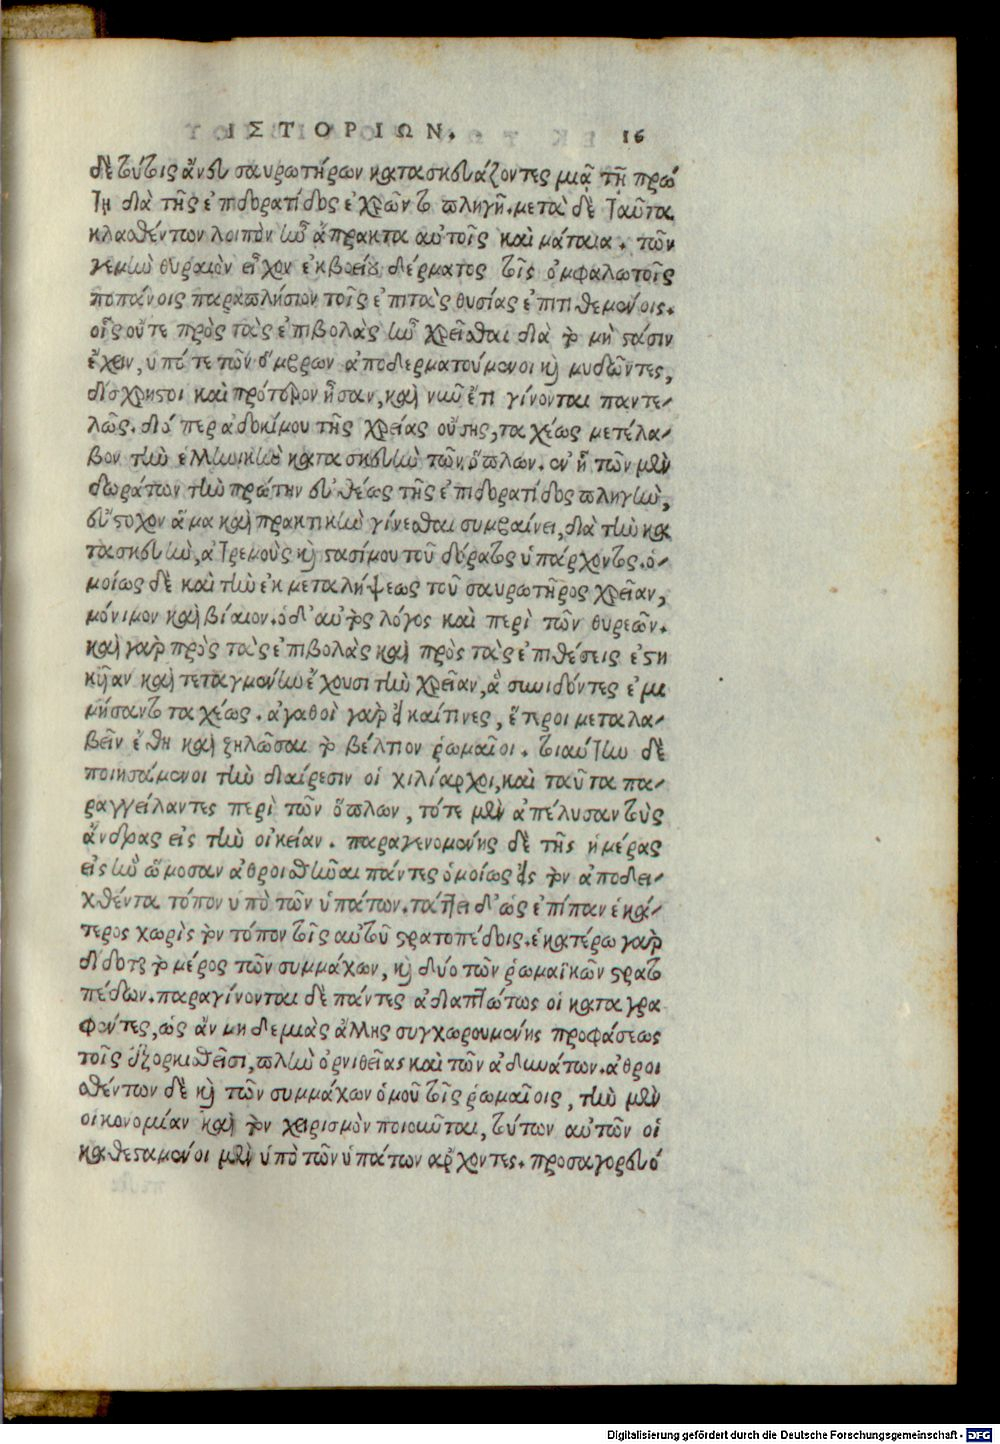 ΙΣΤΟΡΙΩΝ. 16
δὲ τούτοις ἄνευ σαυρωτήρων κατασκευάζοντες μιᾷ τῇ πρώ
τῃ διὰ τῆς ἐπιδορατίδος ἐχρῶντο πληγῇ. μετὰ δὲ ταῦτα
κλασθέντων λοιπὸν ἦν ἄπρακτα αὐτοῖς καὶ μάταια. τόν
γεμὴν θυραιὸν εἶχον ἐκβοείου δέρματος τοῖς ὀμφαλωτοῖς
ποπάνοις παραπλήσιον τοῖς ἐπιτὰς θυσίας ἐπιτιθεμένοις.
οἷς οὔτε πρὸς τὰς ἐπιβολὰς ἦν χρεῖσθαι διὰ τὸ μὴ στάσιν
ἔχειν, ὑπό τε τῶν ὄμβρων ἀποδερματούμενοι καὶ μυδῶντες,
δύσχρηστοι καὶ πρότερον ἦσαν, καὶ νῦν ἔτι γίνονται παντε-
λῶς. διό περ ἀδοκίμου τῆς χρείας οὔσης, ταχέως μετέλα-
βον τὴν ἑλληνικὴν κατασκευὴν τῶν ὅπλων. ἐν ᾗ τῶν μὲν
δωράτων τὴν πρώτην εὐθέως τῆς ἐπιδορατίδος πληγὴν,
εὔστοχον ἅμα καὶ πρακτικὴν γίνεσθαι συμβαίνει, διὰ τὴν κα
τασκευὴν, ἀτρεμοὺς καὶ στασίμου τοῦ δόρατος ὑπάρχοντος. ὁ-
μοίως δὲ καὶ τὴν ἐκ μεταλήψεως τοῦ σαυρωτῆρος χρείαν,
μόνιμον καὶ βίαιον. ὁ δ' αὐτὸς λόγος καὶ περὶ τῶν θυρεῶν.
καὶ γὰρ πρὸς τὰς ἐπιβολὰς καὶ πρὸς τὰς ἐπιθέσεις ἑστη
κυῖαν καὶ τεταγμένην ἔχουσι τὴν χρείαν, ἃ συνιδόντες ἐμι
μήσαντο ταχέως. ἀγαθοὶ γὰρ εἰ καί τινες, ἕτεροι μεταλα-
βεῖν ἔθη καὶ ζηλῶσαι τὸ βέλτιον ῥωμαῖοι. τοιαύτην δὲ
ποιησάμενοι τὴν διαίρεσιν οἱ χιλίαρχοι, καὶ ταῦτα πα-
ραγγείλαντες περὶ τῶν ὅπλων, τότε μὲν ἀπέλυσαν τοὺς
ἄνδρας εἰς τὴν οἰκείαν. παραγενομένης δὲ τῆς ἡμέρας
εἰς ἣν ὤμοσαν ἀθροισθῆναι πάντες ὁμοίως εἰς τὸν ἀποδει-
χθέντα τόπον ὑπὸ τῶν ὑπάτων. τάττει δ' ὡς ἐπίπαν ἑκά-
τερος χωρὶς τὸν τόπον τοῖς αὐτοῦ στρατοπέδοις. ἑκατέρω γὰρ
δίδοται τὸ μέρος τῶν συμμάχων, καὶ δύο τῶν ῥωμαϊκῶν στρατο
πέδων. παραγίνονται δὲ πάντες ἀδιαπτώτως οἱ καταγρα
φέντες, ὡς ἂν μηδεμιᾶς ἄλλης συγχωρουμένης προφάσεως
τοῖς ἐξορκισθεῖσι, πλὴν ὀρνιθείας καὶ τῶν ἀδυνάτων. ἀθροι
σθέντων δὲ καὶ τῶν συμμάχων ὁμοῦ τοῖς ῥωμαίοις, τὴν μὲν
οἰκονομίαν καὶ τὸν χειρισμὸν ποιοῦνται, τούτων αὐτῶν οἱ
καθεσταμένοι μὲν ὑπὸ τῶν ὑπάτων ἄρχοντες. προσαγορευό
Digitalisierung gefördert durch die Deutsche Forschungsgemeinschaft - DFG